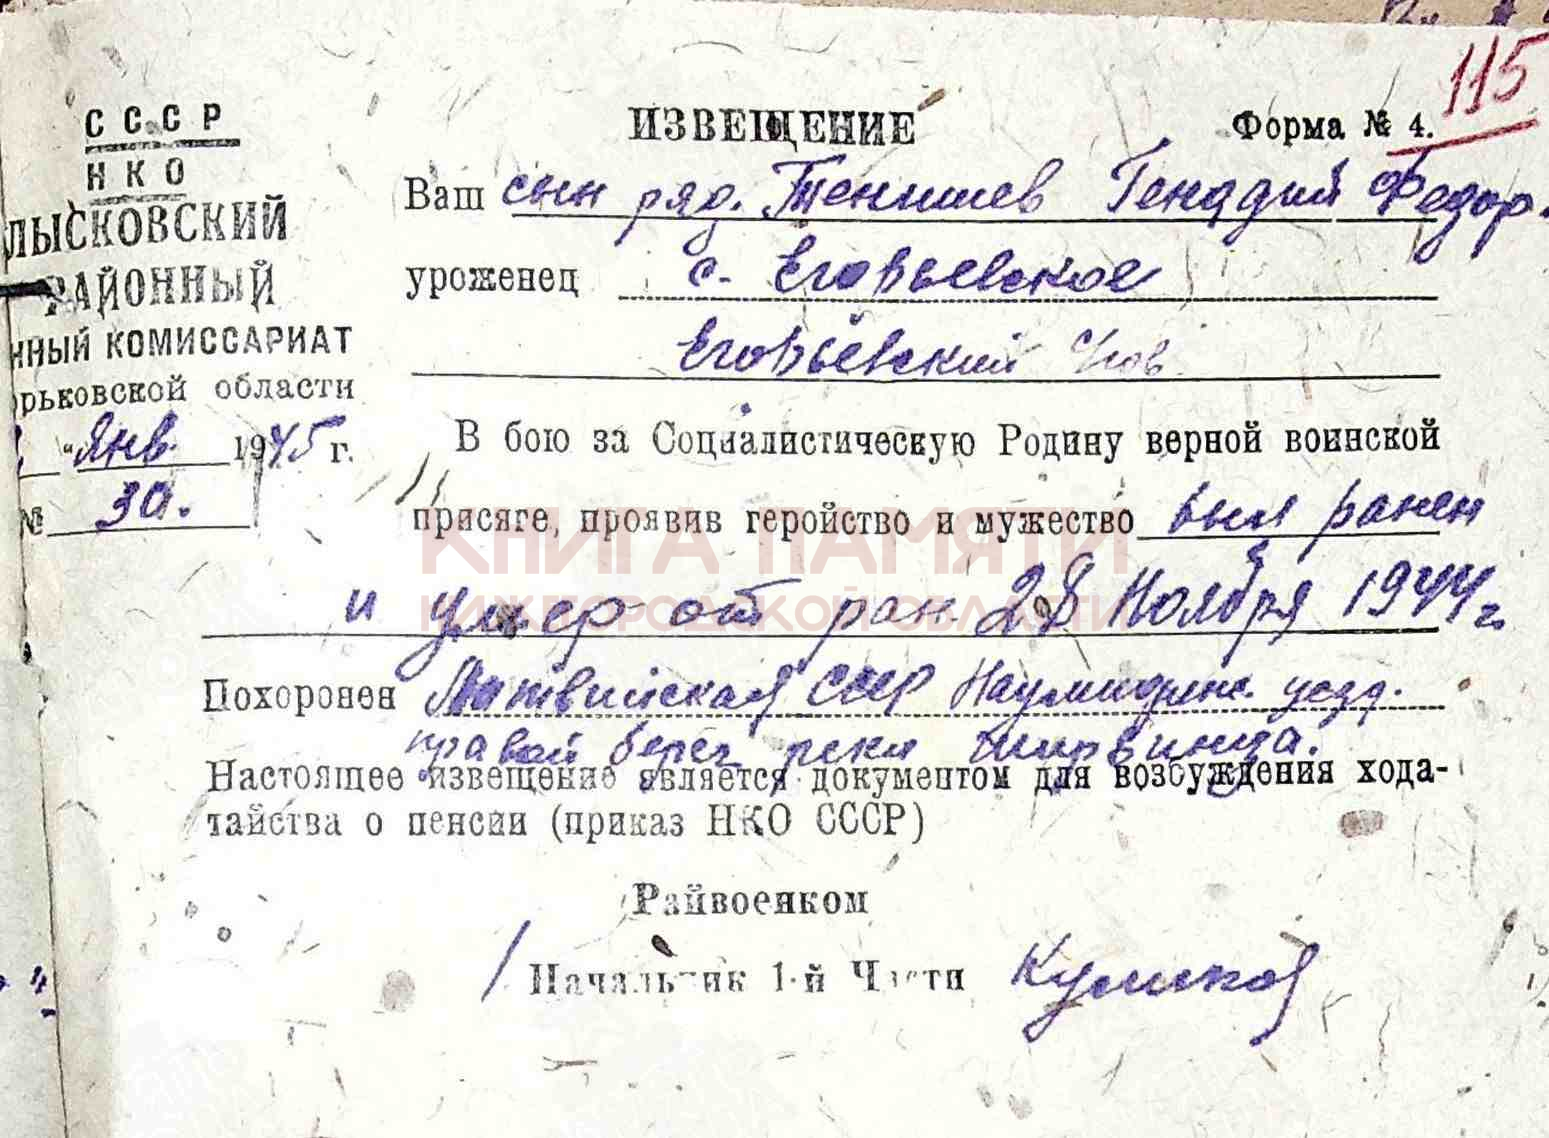 115
СССР
НКО
ЛЫСКОВСКИЙ
РАЙОННЫЙ
ННЫЙ КОМИССАРИАТ
рьковской области
" Янв 1945 г.
№ 30.
ИЗВЕЩЕНИЕ
Форма № 4.
Ваш сын ряд. Тенишев Генадий Федор.
уроженец с. Егорьевское
Егорьевский
В бою за Социалистическую Родину верной воинской
присяге, проявив геройство и мужество был ранен
и умер от ран 28 Ноября 1944 г.
Похоронен Латвийская ССР уезд.
правый берег реки
Настоящее извещение является документом для возбуждения хода-
тайства о пенсии (приказ НКО СССР)
Райвоенком
/ Начальник 1-й Части Куликов
КНИГА ПАМЯТИ
НИЖГОРОДСКОЙ ОБЛАСТИ